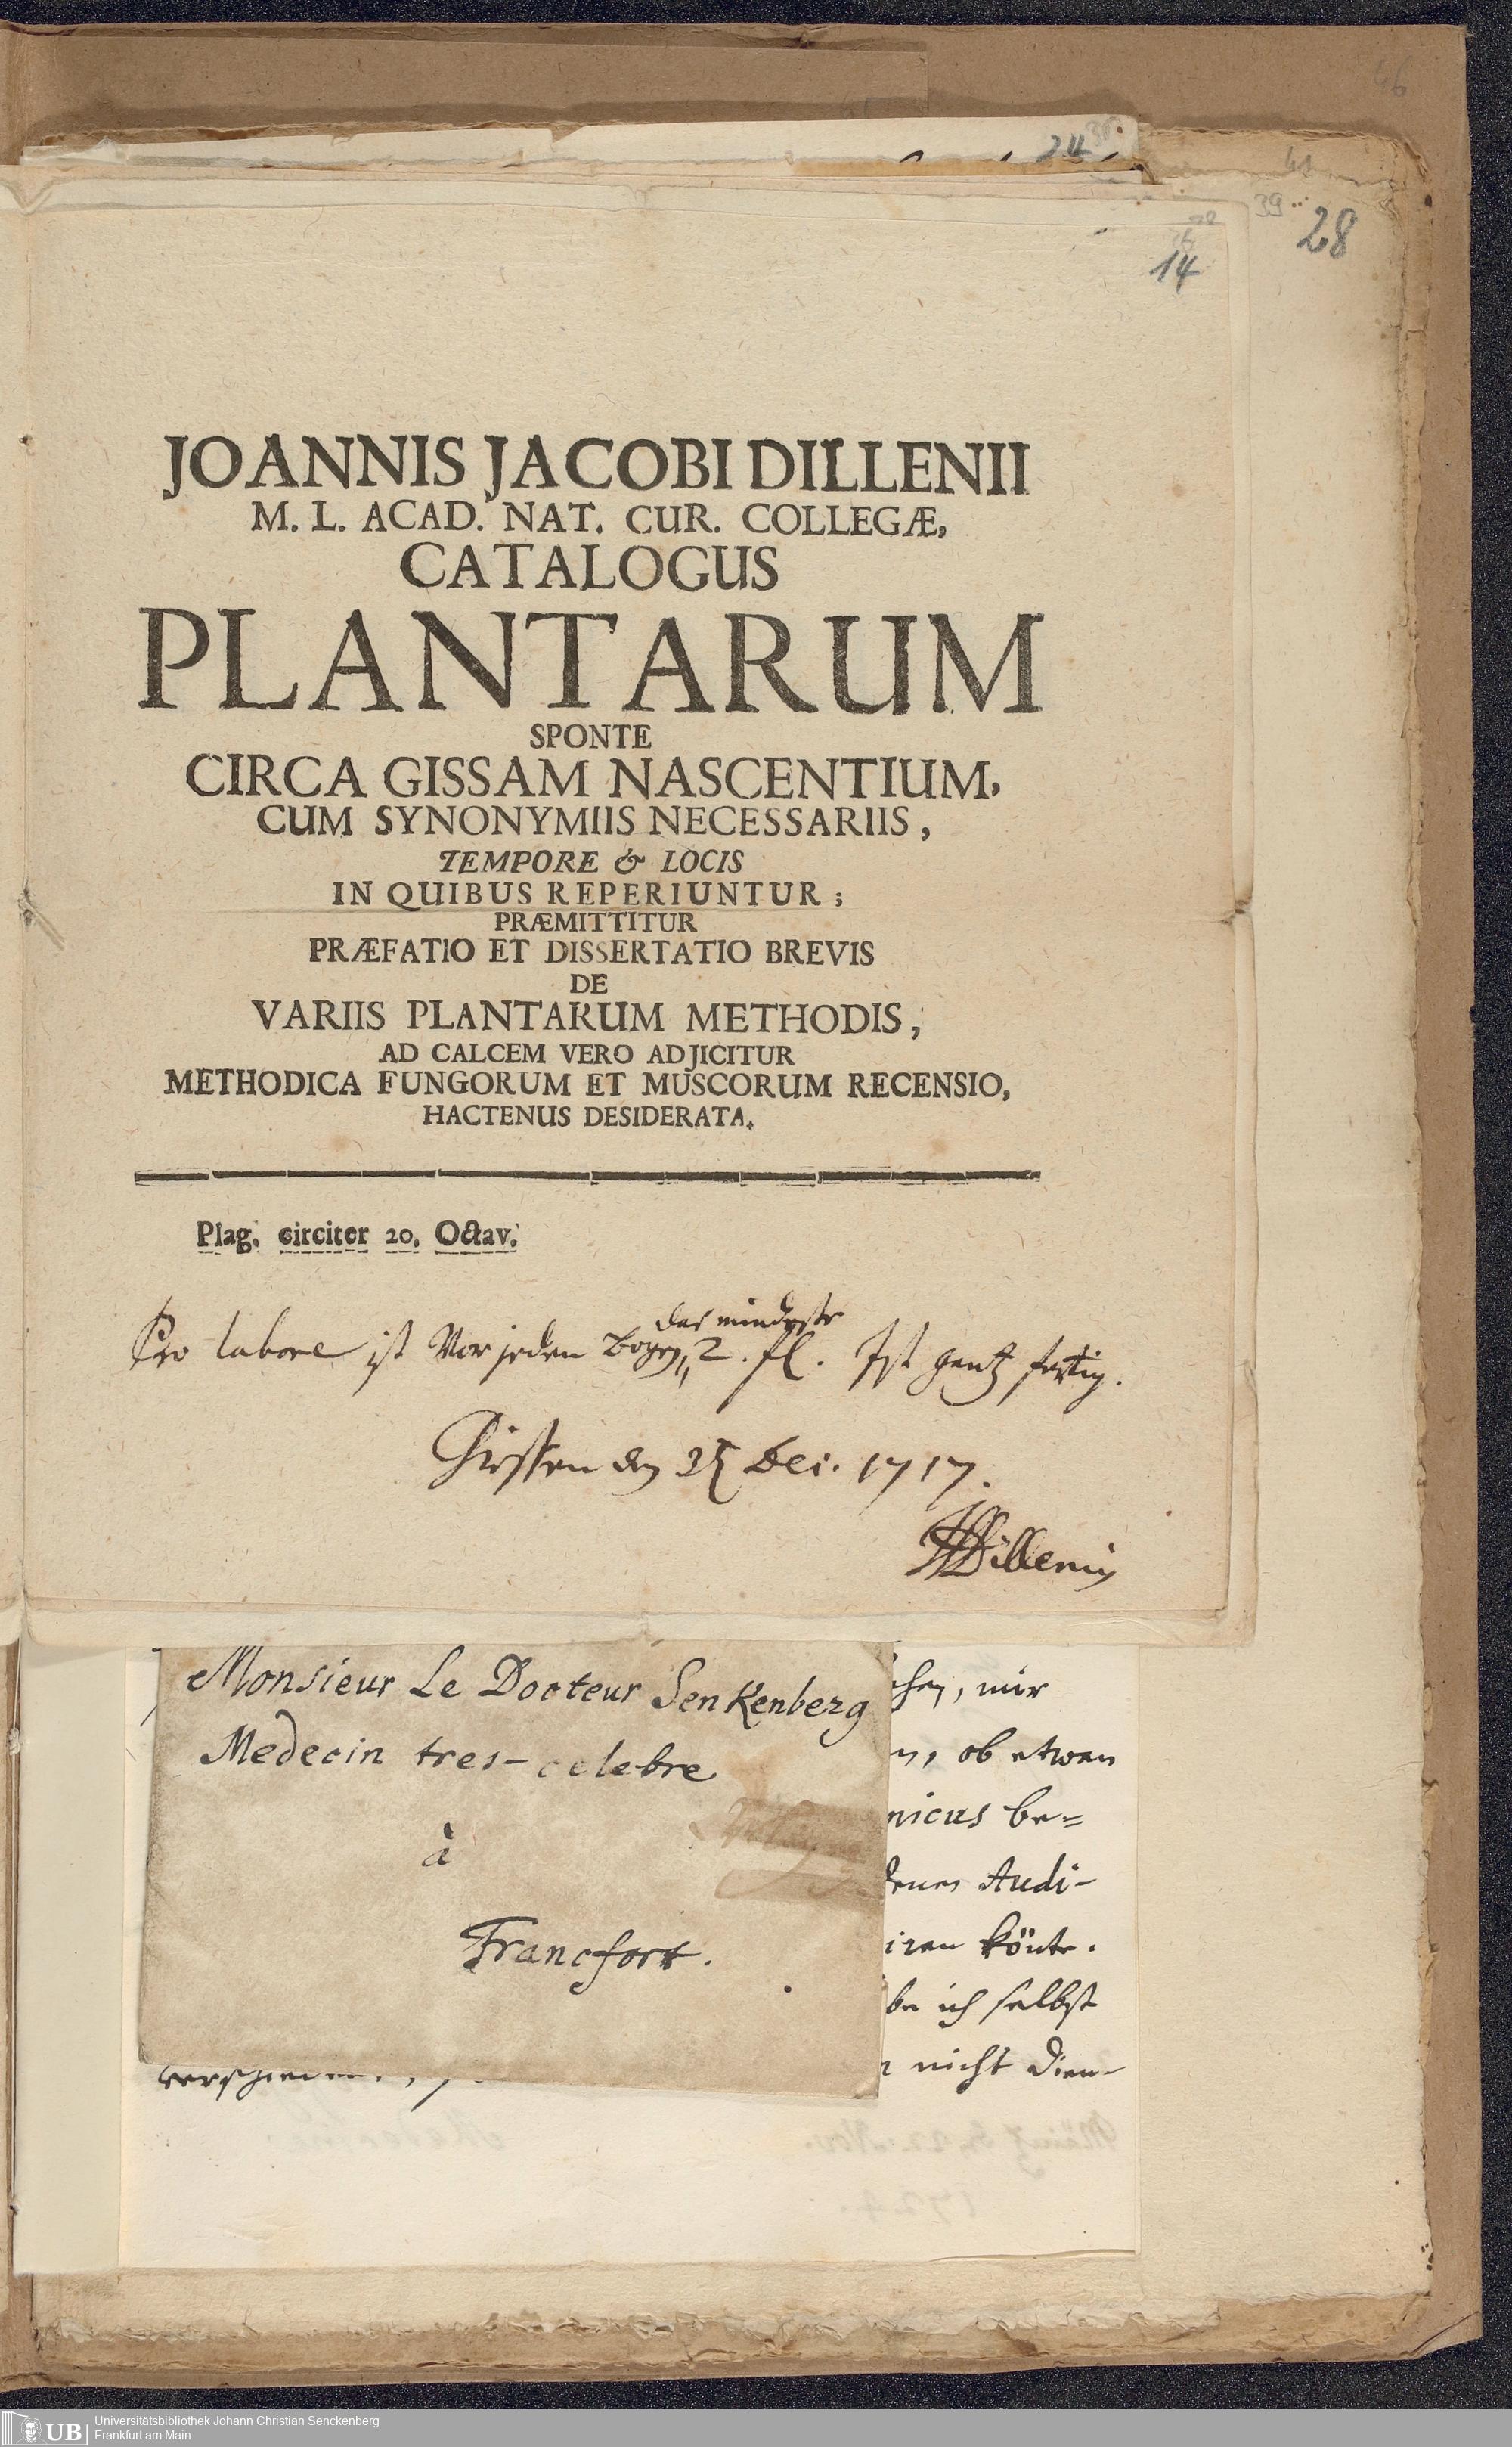 46
38
24
41
39
28
14
JOANNIS JACOBI DILLENII
M. L. ACAD. NAT. CUR. COLLEGÆ,
CATALOGUS
PLANTARUM
SPONTE
CIRCA GISSAM NASCENTIUM,
CUM SYNONYMIIS NECESSARIIS,
TEMPORE & LOCIS
IN QUIBUS REPERIUNTUR;
PRÆMITTITUR
PRÆFATIO ET DISSERTATIO BREVIS
DE
VARIIS PLANTARUM METHODIS,
AD CALCEM VERO ADJICITUR
METHODICA FUNGORUM ET MUSCORUM RECENSIO,
HACTENUS DESIDERATA.
Plag. circiter 20. Octav.
das mindeste
Pro labore ist Vor jeden bogen 2. fl. Ist gantz fertig.
Giessen den Dec. 1717.
JJDillenius
Monsieur Le Docteur Senkenberg
Medecin tres-celebre
à
Francfort.
mir
ob etwan
nicus be=
Audi-
iren könte.
be ich selbst
nicht dien-
UB
Universitätsbibliothek Johann Christian Senckenberg
Frankfurt am Main